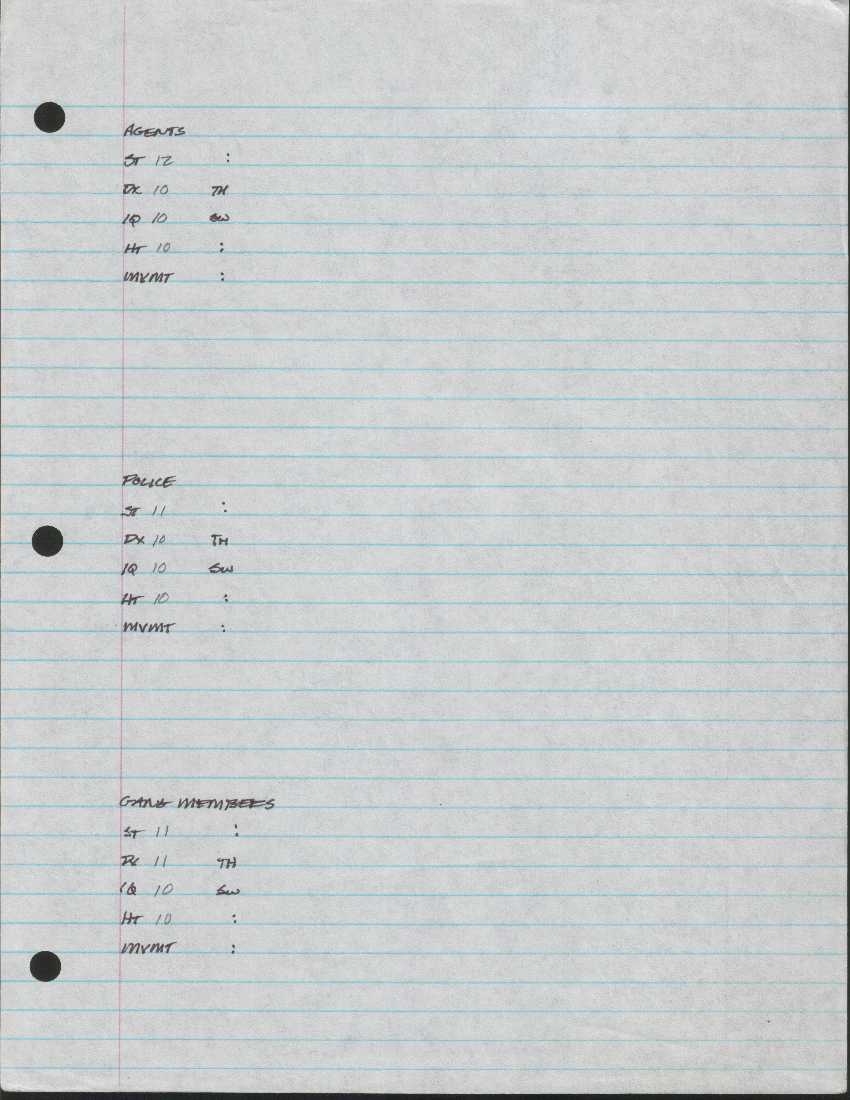 AGENTS
ST 12 :
DX 10 TH
IQ 10 SW
HT 10 :
MVMT :
POLICE
ST 11 :
DX 10 TH
IQ 10 SW
HT 10 :
MVMT :
GANG MEMBERS
ST 11 :
DX 11 TH
IQ 10 SW
HT 10 :
MVMT :